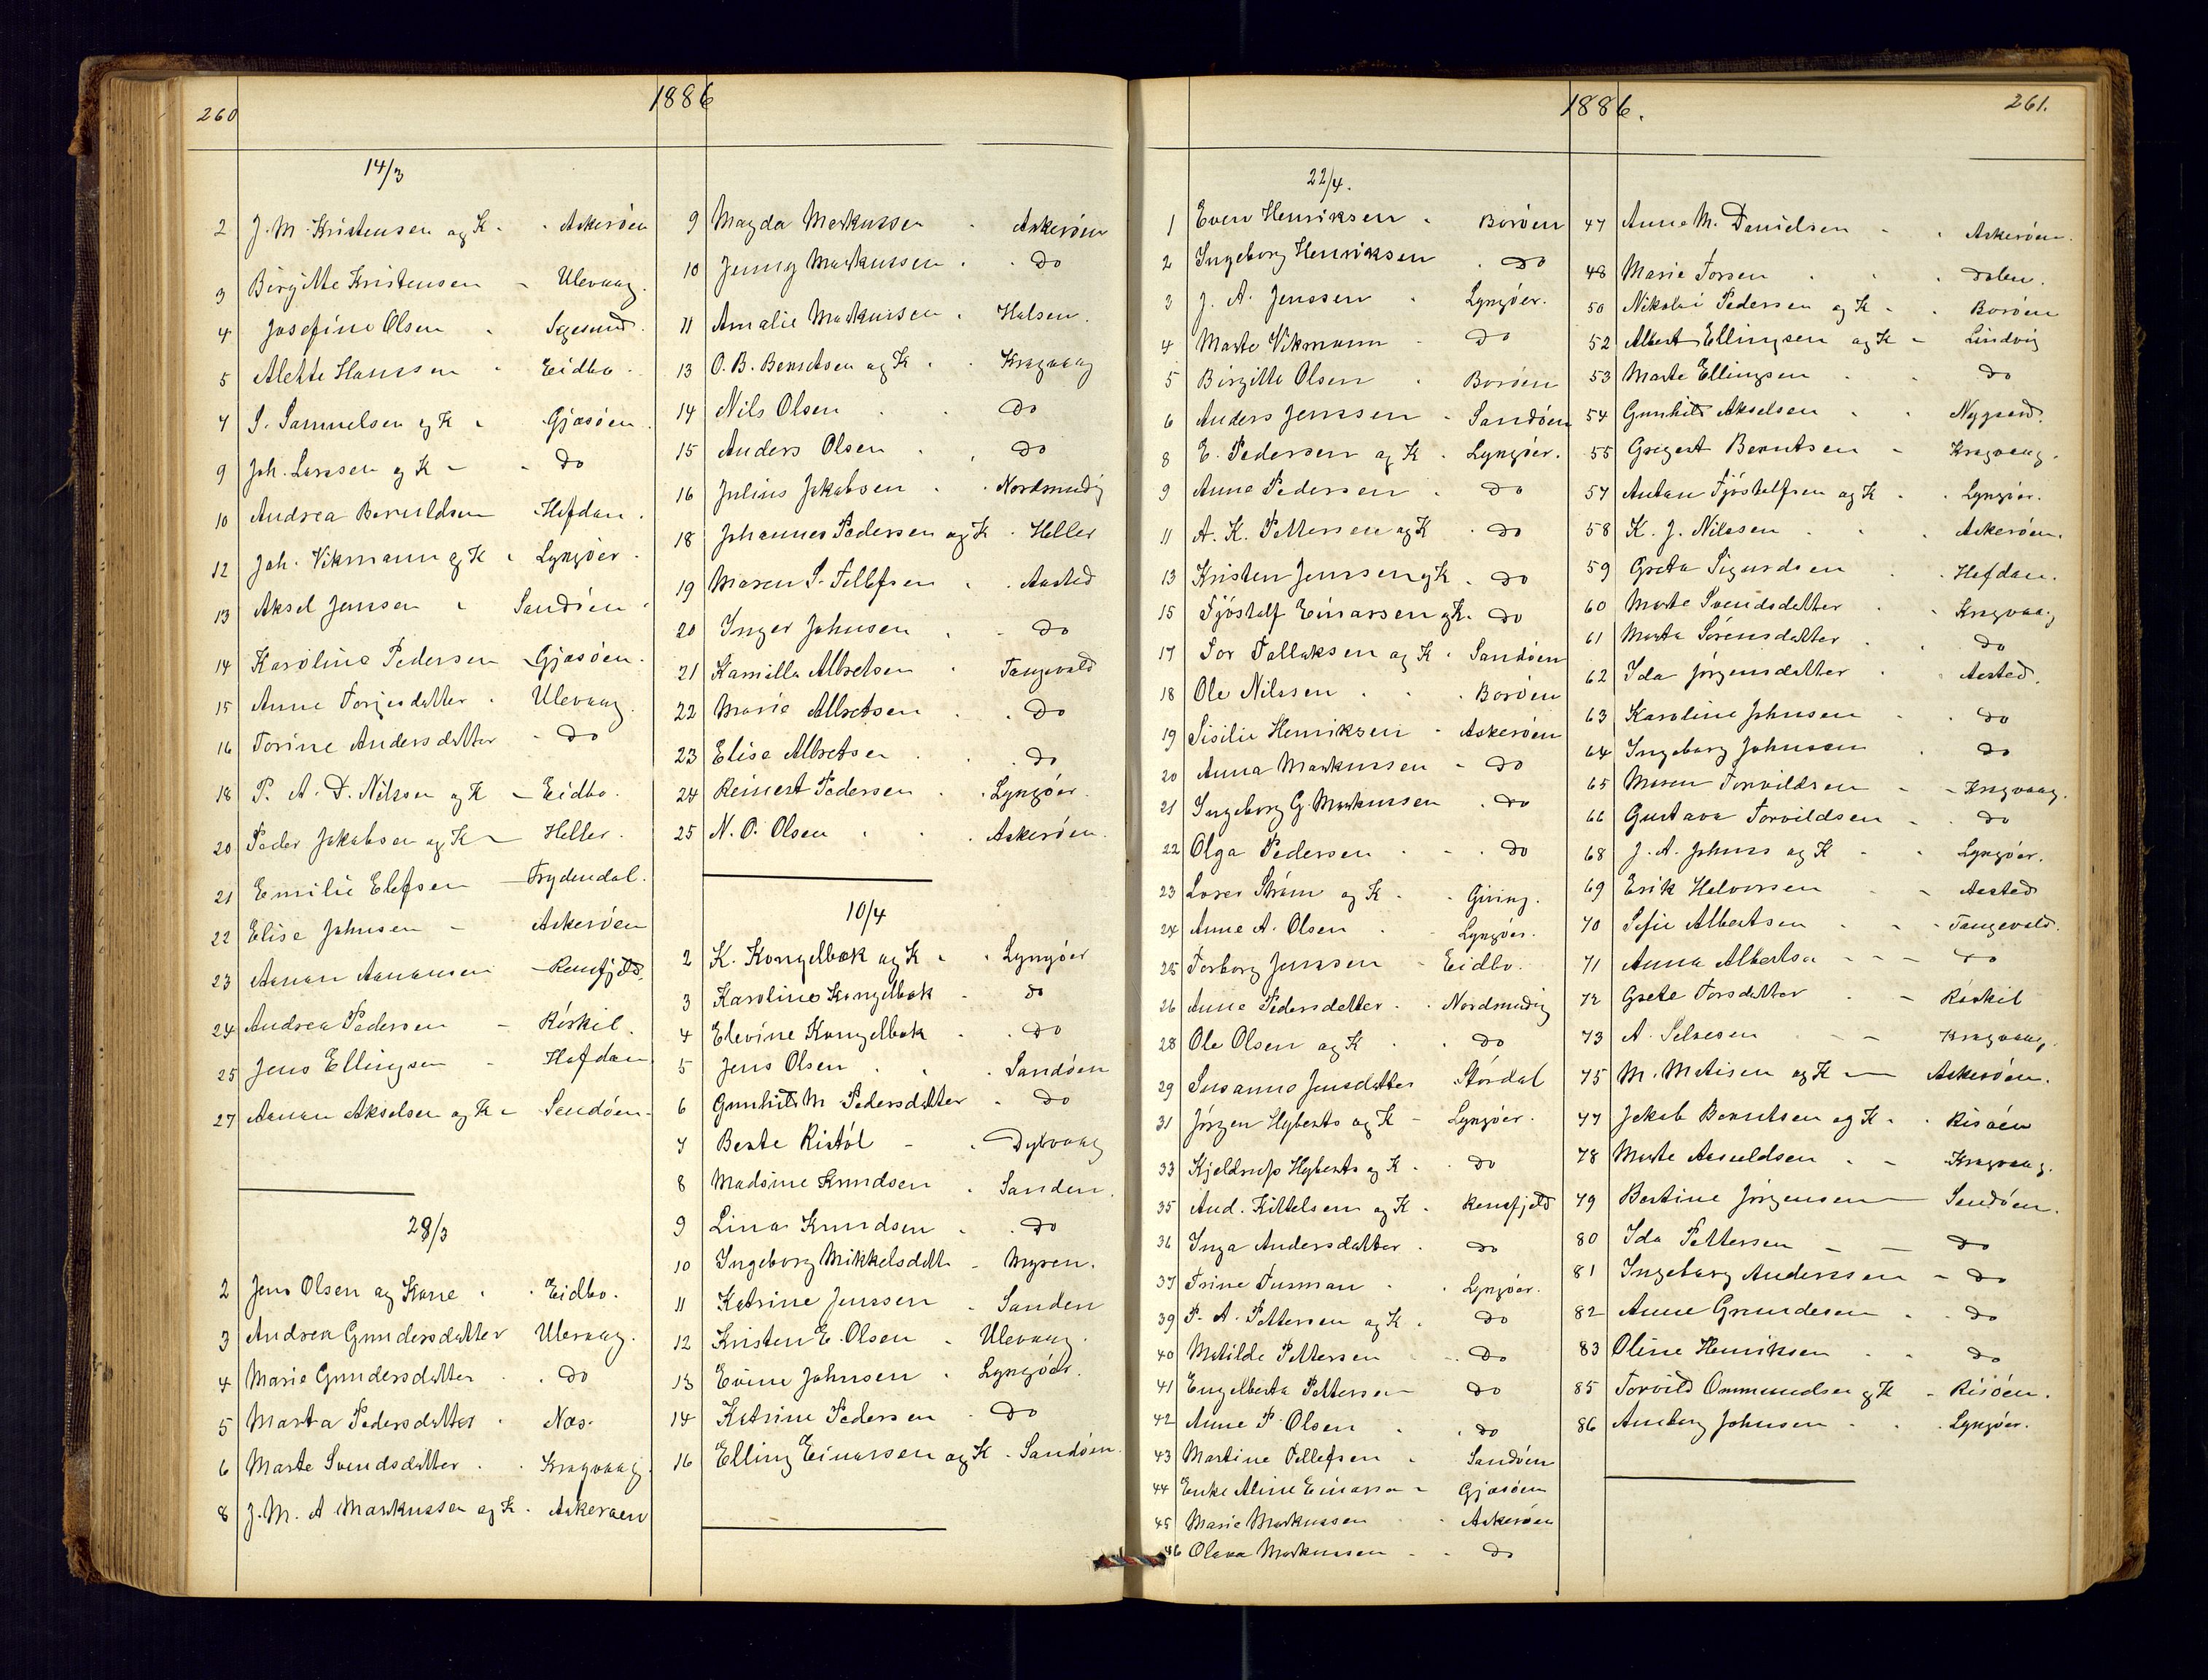 260
1886
14/3
2 J. M. Kristensen og K. - Askerøen
3 Birgitte Kristensen - Ulevaag.
4 Josefine Olsen - Sagesund.
5 Alette Hanssen - Eidbo.
7 S. Samuelsen og K - Gjæsøen.
9 Joh. Larssen og K - - do
10 Andrea Beruldsen Hafdan.
12 Joh. Vikmann og K - Lyngöer.
13 Aksel Jensen - Sandöen.
14 Karoline Pedersen - Gjæsöen.
15 Anne Torjesdatter - Ulevaag.
16 Torine Andersdatter - do
18 P. A. D. Nilsen og K - Eidbo.
20 Peder Jakobsen og K - Heller.
21 Emilie Elefsen - Frydendal.
22 Elise Johnsen - Askeröen
23 Aanan Aanansen - Rensfjeld.
24 Andrea Pedersen - Röskil.
25 Jens Ellingsen - Hafdan
27 Aanan Akselsen og K - Sandöen.
28/3
2 Jens Olsen og Kone - Eidbo.
3 Andrea Gundersdatter Ulevaag.
4 Marie Gundersdatter - do
5 Marta Pedersdatter - Næs.
6 Marte Svendsdatter - Kragvaag.
8 J. M. A Markussen og K. Askerøen
9 Magda Markussen - Askeröen
10 Jenny Markussen - do
11 Amalie Markussen - Halsen.
13 O. B. Berntsen og K - Kragvaag
14 Nils Olsen - do
15 Anders Olsen - do
16 Julius Jakobsen - Nordmudig
18 Johannes Pedersen og K - Heller
19 Maren S. Tellefsen - Aasted
20 Inger Johnsen - do
21 Kamilla Albretsen - Tangevald
22 Marie Albretsen - do
23 Elise Albretsen - do
24 Reinert Pedersen - Lyngöer.
25 N. O. Olsen - Askeröen.
10/4
2 K. Kongelbæk og K - Lyngöer
3 Karoline Kongelbæk - do
4 Elevine Kongelbæk - do
5 Jens Olsen - Sandöen
6 Gunhild M Pedersdatter - do
7 Berte Ristöl - Dybvaag
8 Madsine Knudsen - Sanden.
9 Lina Knudsen - do
10 Ingeborg Mikkelsdatt - Myren.
11 Katrine Jenssen - Sanden
12 Kristen E. Olsen - Ulevaag.
13 Evine Johnsen - Lyngöer.
14 Katrine Pedersen - do
16 Elling Einarsen og K - Sandöen.
1886.
261.
22/4.
1 Even Henriksen - Boröen
2 Ingeborg Henriksen - do
3 J. A. Jenssen - Lyngöer.
4 Marte Vikmann - do
5 Birgitte Olsen - Boröen
6 Anders Jenssen - Sandöen
8 E. Pedersen og K - Lyngöer.
9 Anne Pedersen - do
11 A. K. Pettersen og K - do
13 Kristen Jenssen og K - do
15 Tjöstolf Einarsen og K. do
17 Tor Tallaksen og K - Sandöen
18 Ole Nilssen - Boröen
19 Sisilie Henriksen - Askeröen
20 Anna Markussen - do
21 Ingeborg G. Markussen - do
22 Olga Pedersen - - do
23 Lars Ström og K - Giving.
24 Anne A. Olsen - Lyngöer.
25 Torborg Jenssen - Eidbo.
26 Anne Pedersdatter - Nordmudig
28 Ole Olsen og K - do
29 Susanne Jensdatter Stördal
31 Jörgen Hyberts og K - Lyngöer.
33 Kjeldrup Hyberts og K - do
35 And. Kittelsen og K - Rensfjeld
36 Inga Andersdatter - do
37 Trine Tusman - Lyngöer.
39 P. A. Pettersen og K - do
40 Matilde Pettersen - do
41 Engelberta Pettersen do
42 Anne P. Olsen - do
43 Martine Tellefsen - Sandöen
44 Enke Aline Einarsen - Gjæsöen
45 Marie Markussen - Askeröen
46 Olava Markussen - - do
47 Anne M. Danielsen - Askeröen.
48 Marie Torsen - - Dalen.
50 Nikolai Pedersen og K - Boröen
52 Albert Ellingsen og K - Lindvig
53 Marte Ellingsen - - do
54 Gunhild Akselsen - - Nygaard.
55 Gregert Berntsen - Kragvaag.
57 Antan Tjöstelfsen og K - Lyngöer.
58 K. J. Nilssen - - Askeröen.
59 Greta Sigurdsen - Hafdan.
60 Marte Svendsdatter - Kragvaag
61 Marta Sörensdatter - do
62 Ida Jörgensdatter - Aasted.
63 Karoline Johnsen - do
64 Ingeborg Johnsen - do
65 Maren Torvildsen - - Kragvaag.
66 Gustava Torvildsen - do
68 J. A. Johnss og K - - Lyngöer.
69 Erik Halvorsen - Aasted
70 Sofie Albertsen - - Tangevald.
71 Anna Albertsen - - - do
72 Grete Torsdatter - - Röskil
73 A. Salvesen - - Kragvaag.
75 M. Matisen og K - Askeröen.
77 Jakob Berntsen og K - Risöen
78 Marte Aanuldsen - - Kragvaag.
79 Bertine Jörgensen - Sandöen.
80 Ida Pettersen - - do
81 Ingeborg Anderssen - do
82 Anne Grundesen - - do
83 Oline Henriksen - - do
85 Torvild Ommundsen og K - Risöen.
86 Amborg Johnsen - Lyngöer.